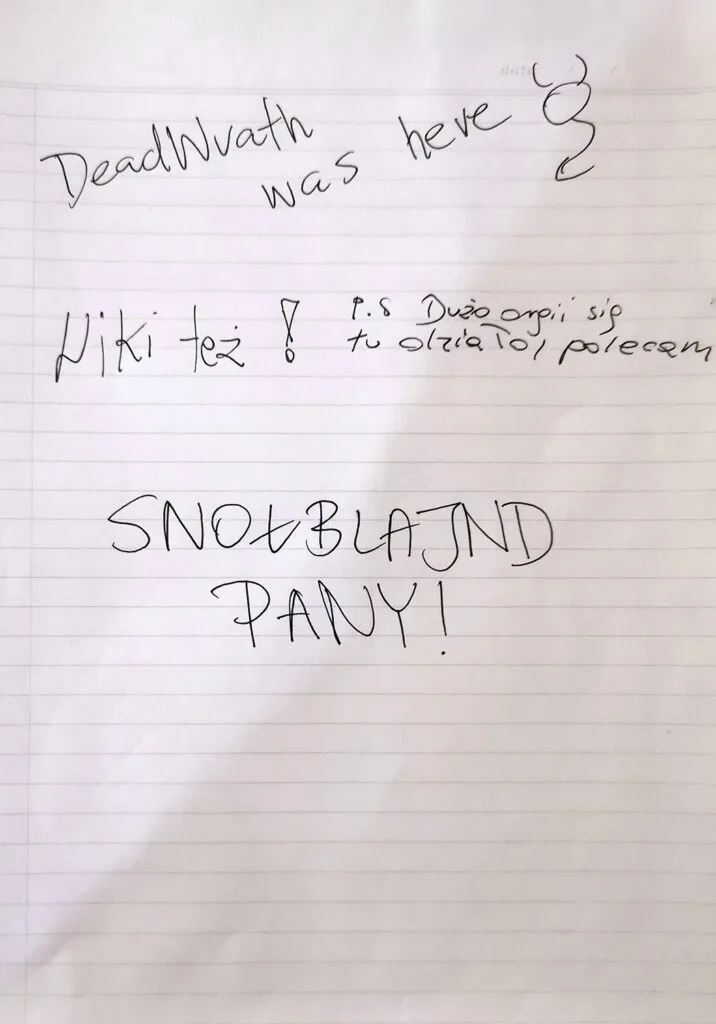 DeadWrath
was here
Niki też !
P.S Dużo orgii się
tu działo, polecam
SNOŁBLAJND
PANY!